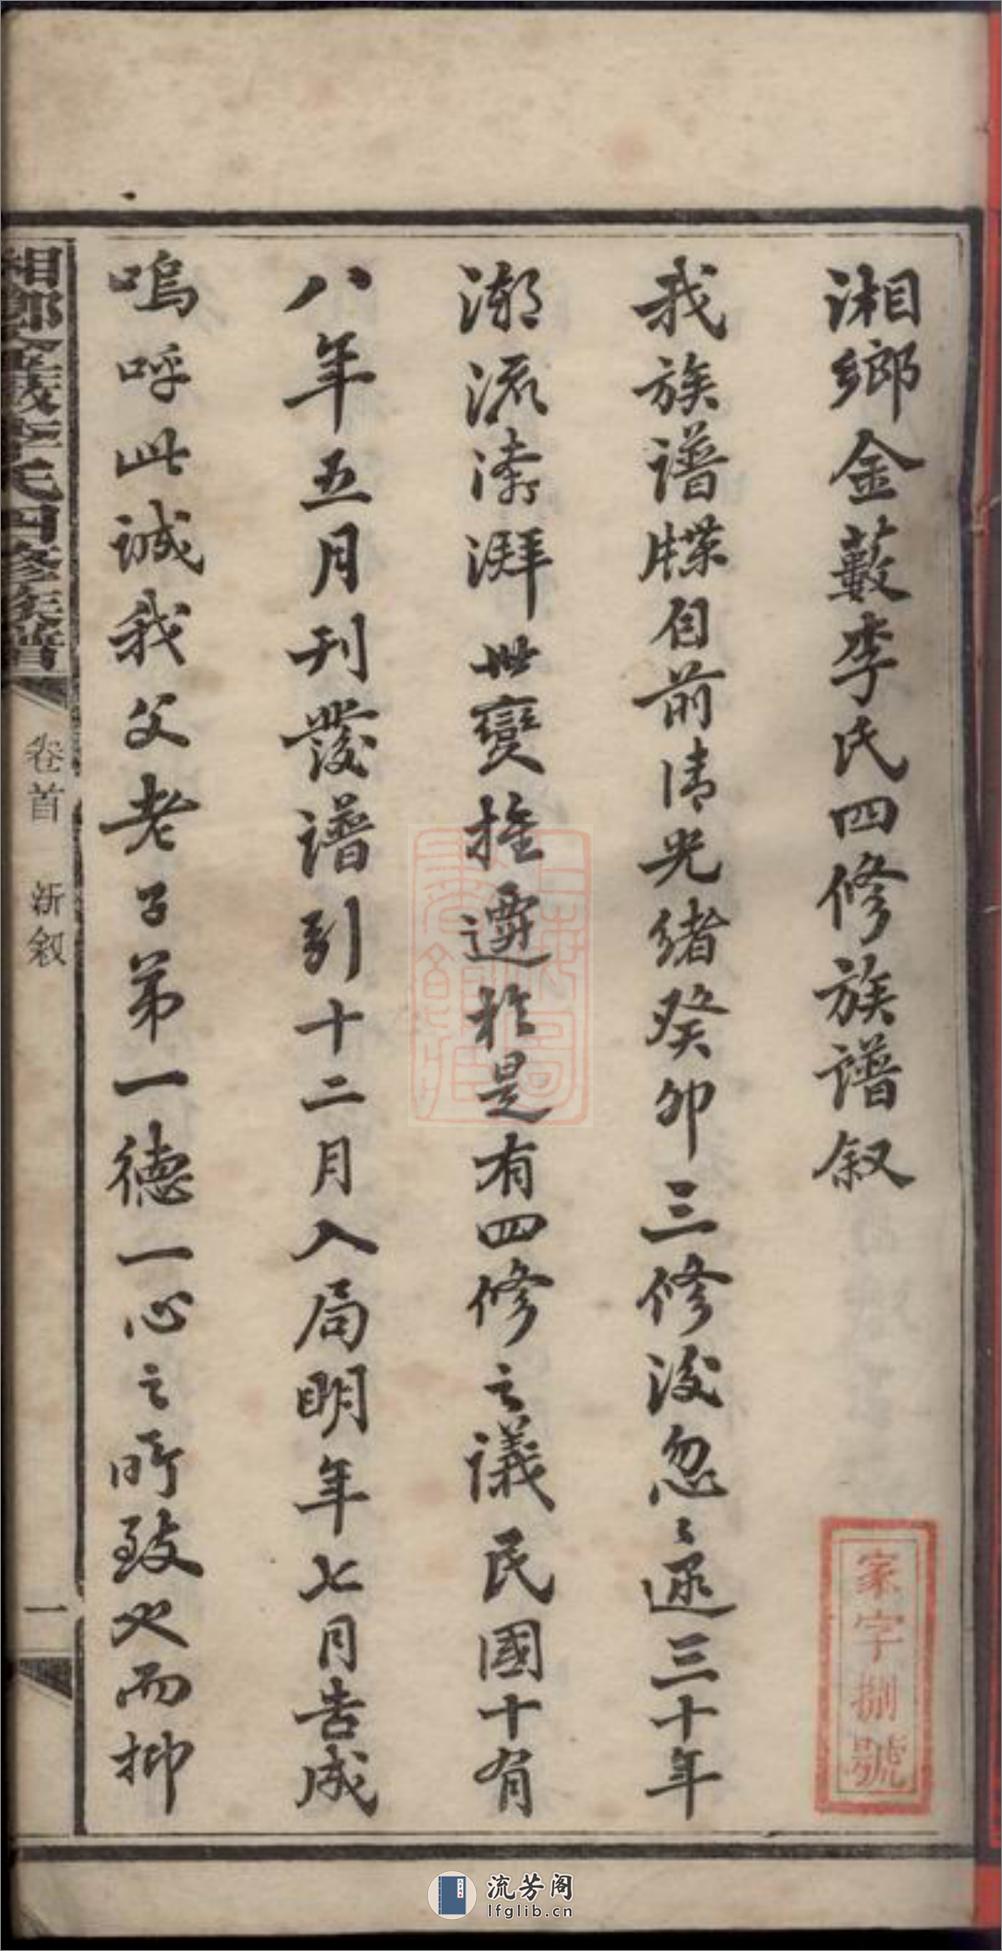 湘鄉金藪李氏四修族譜叙
我族譜牒自前清光緒癸卯三修後忽〻逾三十年
潮流澎湃世變推遷於是有四修之議民國十有
八年五月刊發譜引十二月入局明年七月告成
嗚呼此誠我父老子弟一德一心之所致也而抑
湘鄉金藪李氏四修族譜
卷首 新叙
一
家字捌號
流芳阁
lfglib.cn